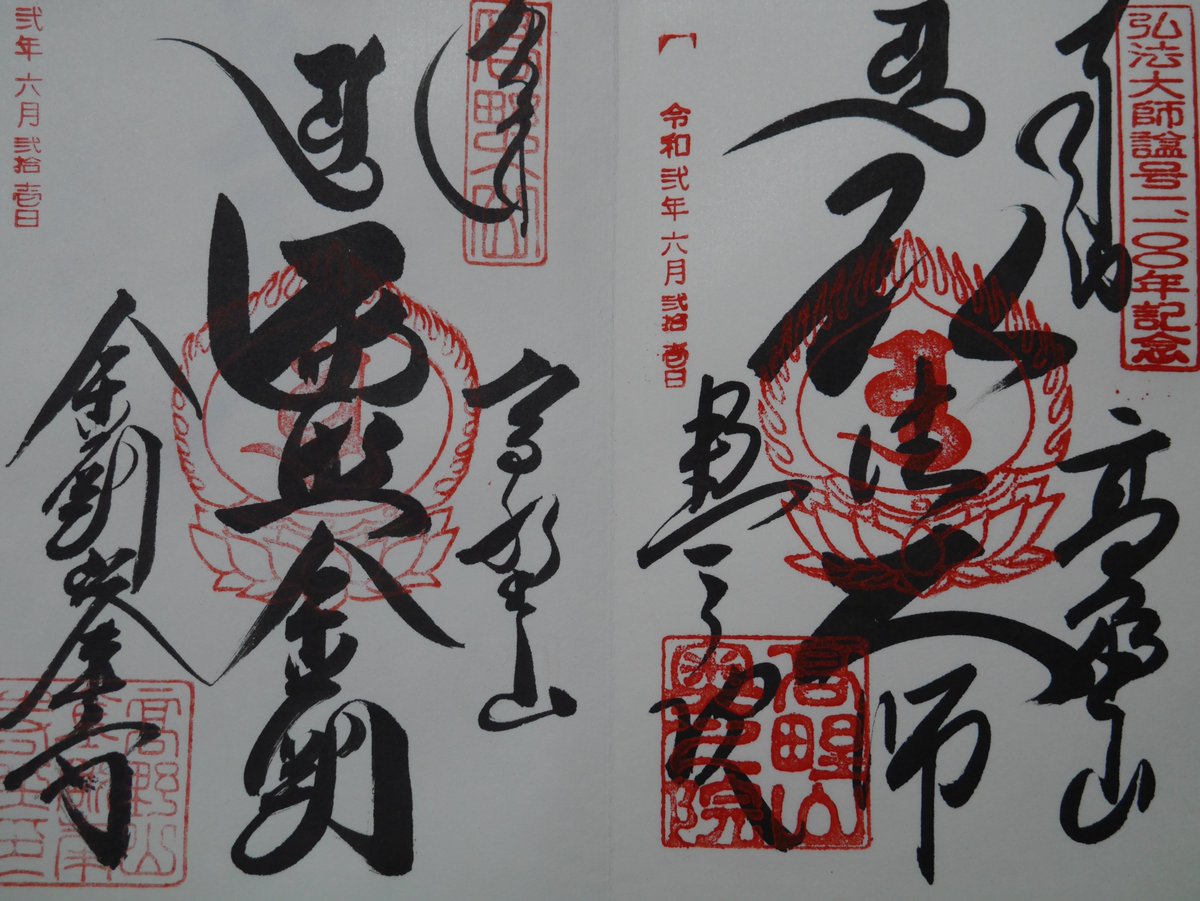 弘法大師諡号一一〇〇年記念
奉納
高野山
弘法大師
奥之院
令和弐年六月弐拾壱日
高野山
奥之院
奉拝
高野山
遍照金剛
金剛峯寺
弐年六月弐拾壱日